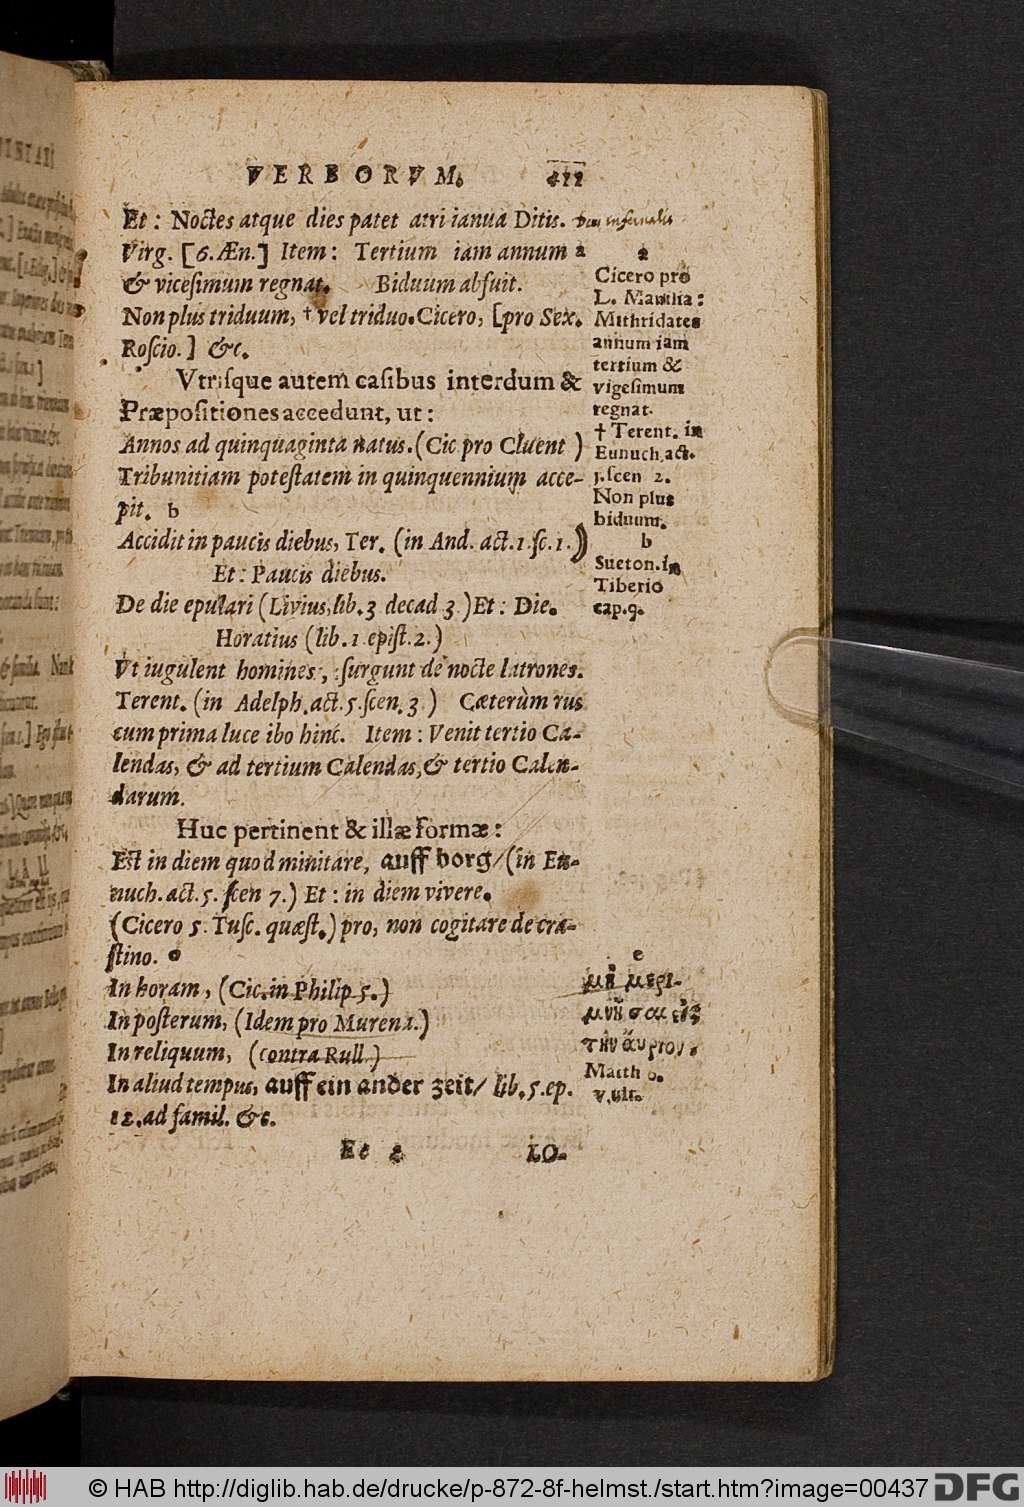 VERBORVM. 411
Et: Noctes atque dies patet atri ianua Ditis.
Virg. [6. Æn.] Item: Tertium iam annum a
& vicesimum regnat. Biduum absuit.
Non plus triduum, † vel triduo. Cicero, [pro Sex.
Roscio.] &c.
Vtrisque autem casibus interdum &
Præpositiones accedunt, ut:
Annos ad quinquaginta natus. (Cic pro Cluent )
Tribunitiam potestatem in quinquennium acce-
pit. b
Accidit in paucis diebus, Ter. (in And. act. 1. sc. 1.)
Et: Paucis diebus.
De die epulari (Livius, lib. 3 decad 3.) Et: Die.
Horatius (lib. 1 epist. 2.)
Vt iugulent homines, surgunt de nocte latrones.
Terent. (in Adelph. act. 5. scen. 3 ) Cæterùm rus
cum prima luce ibo hinc. Item: Venit tertio Ca-
lendas, & ad tertium Calendas, & tertio Calen-
darum.
Huc pertinent & illæ formæ:
Est in diem quod minitare, auff borg/ (in Eu-
nuch. act. 5. scen 7.) Et: in diem vivere.
(Cicero 5. Tusc. quæst.) pro, non cogitare de cra-
stino. e
In horam, (Cic. in Philip 5.)
In posterum, (Idem pro Murena.)
In reliquum, (contra Rull.)
In aliud tempus, auff ein ander zeit/ lib. 5. ep.
12. ad famil. &c.
Ee 2 LO-
infernalis
a
Cicero pro
L. Manilia:
Mithridates
annum iam
tertium &
vigesimum
regnat.
† Terent. in
Eunuch. act.
1. scen 2.
Non plus
biduum.
b
Sueton. in
Tiberio
cap. 9.
e
μὴ μερι-
μνήσατε εἰς
τὴν αὔριον.
Matth 6.
v. ult.
© HAB http://diglib.hab.de/drucke/p-872-8f-helmst./start.htm?image=00437
DFG